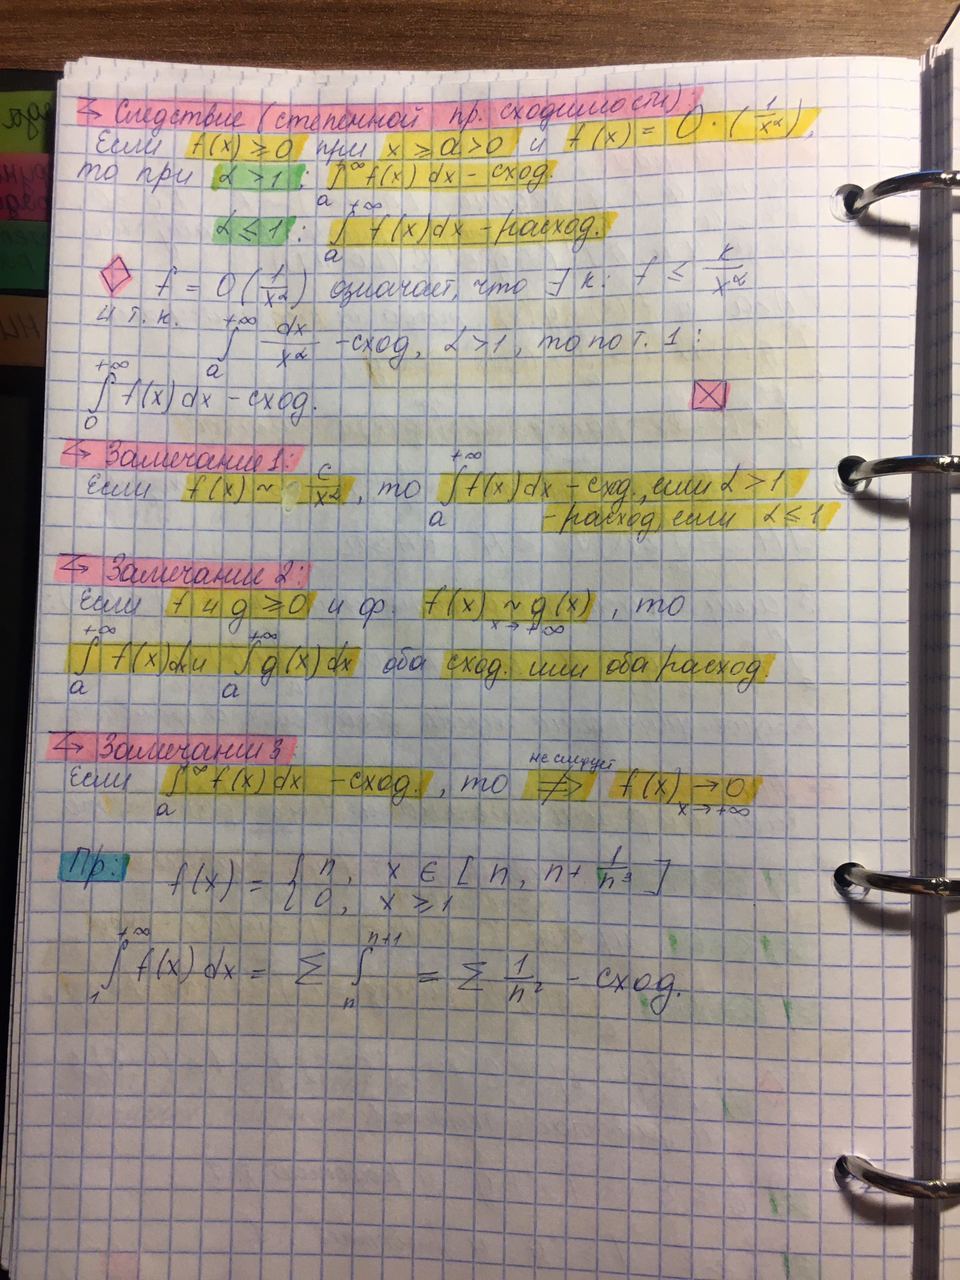 ↳ Следствие (степенной пр. сходимости):
Если f(x) ≥ 0 при x ≥ a > 0 и f(x) = O·(1/x^α),
то при α > 1 : ∫_a^∞ f(x) dx - сход.
α ≤ 1 : ∫_a^{+∞} f(x) dx - расход.
f = O(1/x^α) означает, что ∃ k: f ≤ k/x^α
и т.к. ∫_a^{+∞} dx/x^α - сход, α > 1, то по т. 1:
∫_0^{+∞} f(x) dx - сход.
↳ Замечание 1:
Если f(x) ~ c/x^α, то ∫_a^{+∞} f(x) dx - сход., если α > 1
- расход, если α ≤ 1
↳ Замечание 2:
Если f и g ≥ 0 и ф. f(x) ~ g(x), то
x→+∞
∫_a^{+∞} f(x) dx и ∫_a^{+∞} g(x) dx оба сход. или оба расход.
↳ Замечание 3
не следует
Если ∫_a^∞ f(x) dx - сход., то ≠> f(x) → 0
x→+∞
Пр: f(x) = { n, x ∈ [n, n + 1/n³]
0, x ≥ 1
∫_1^{+∞} f(x) dx = Σ ∫_n^{n+1} = Σ 1/n² - сход.